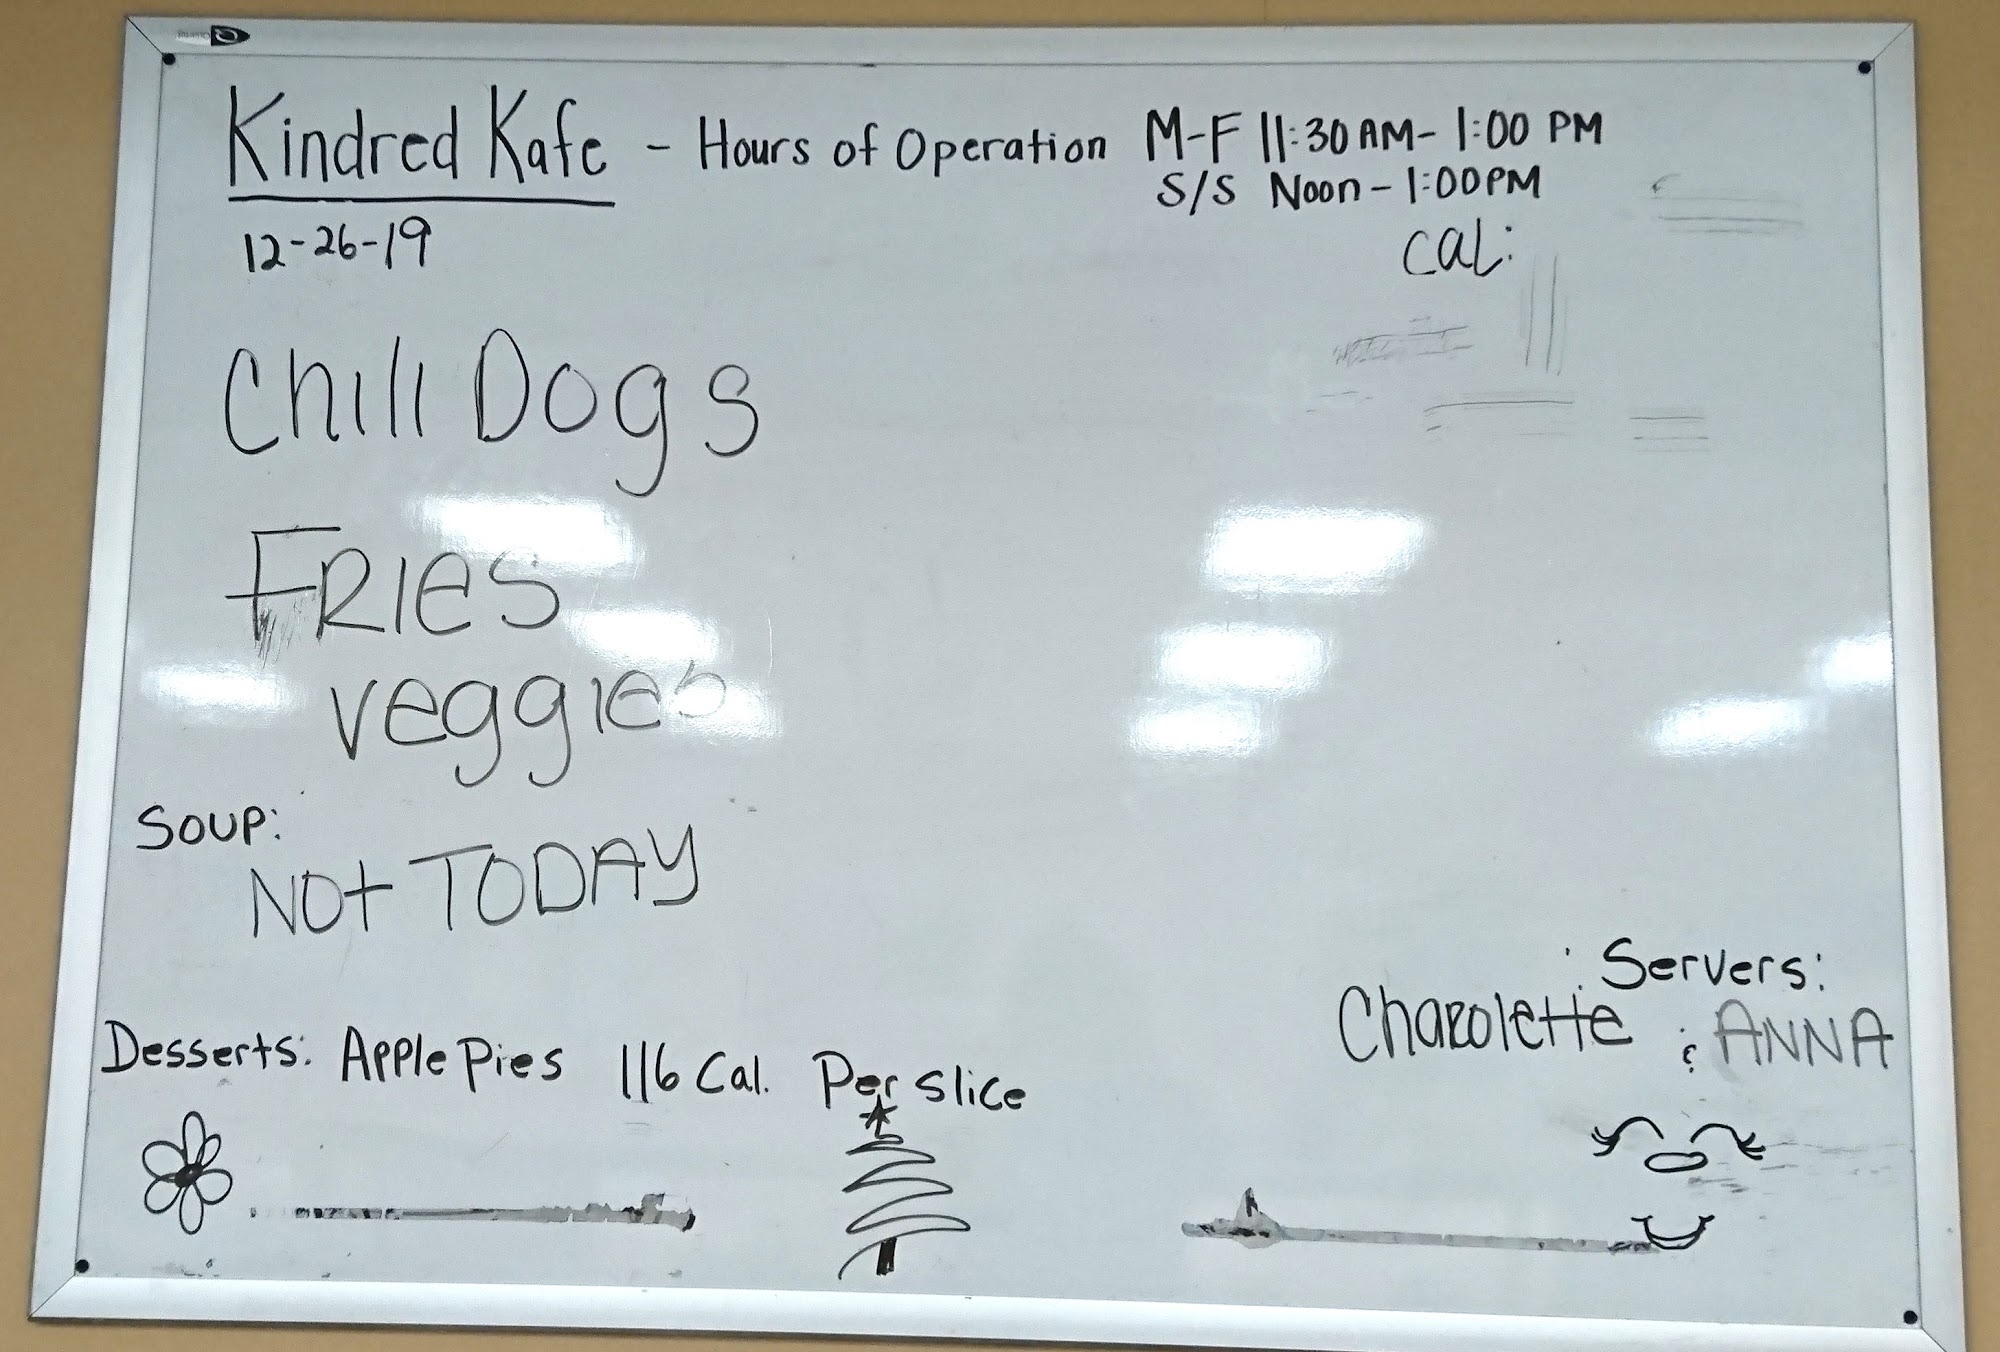 Kindred Kafe - Hours of Operation M-F 11:30 AM - 1:00 PM
S/S Noon - 1:00 PM
12-26-19
cal:
Chili Dogs
FRIes
veggies
Soup:
NOt TODAY
Servers:
Charolette & ANNA
Desserts: Apple Pies 116 Cal. Per slice